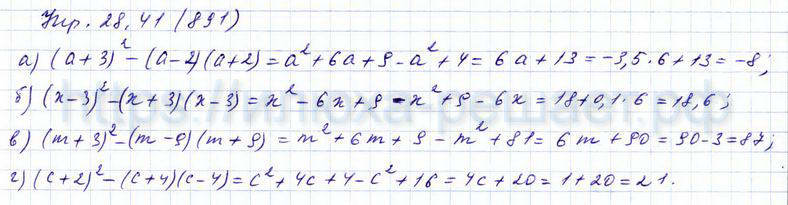 Упр. 28.41 (891)
а) (a+3)² - (a-2)(a+2) = a² + 6a + 9 - a² + 4 = 6a + 13 = -3,5·6 + 13 = -8;
б) (x-3)² - (x+3)(x-3) = x² - 6x + 9 - x² + 9 - 6x = 18 + 0,1·6 = 18,6;
в) (m+3)² - (m-9)(m+9) = m² + 6m + 9 - m² + 81 = 6m + 90 = 90 - 3 = 87;
г) (c+2)² - (c+4)(c-4) = c² + 4c + 4 - c² + 16 = 4c + 20 = 1 + 20 = 21.